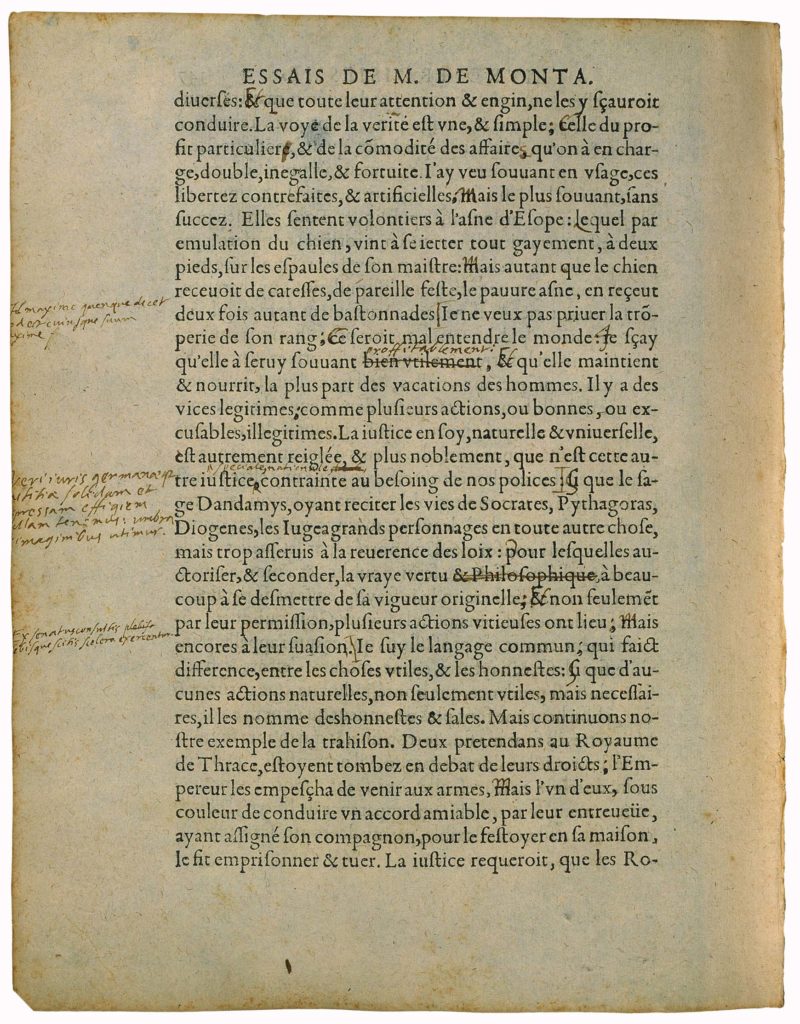 ESSAIS DE M. DE MONTA.
diuerses: & que toute leur attention & engin, ne les y sçauroit
conduire. La voye de la verité est vne, & simple; Celle du pro-
fit particulier, & de la cõmodité des affaires, qu'on à en char-
ge, double, inegalle, & fortuite. I'ay veu souuant en vsage, ces
libertez contrefaites, & artificielles, Mais le plus souuant, sans
succez. Elles sentent volontiers à l'asne d'Esope: Lequel par
emulation du chien, vint à se ietter tout gayement, à deux
pieds, sur les espaules de son maistre: Mais autant que le chien
receuoit de caresses, de pareille feste, le pauure asne, en reçeut
deux fois autant de bastonnades| Ie ne veux pas priuer la trõ-
Id maxime quenque decet
perie de son rang; Ce seroit mal entendre le monde: Ie sçay
proffitablement:
qu'elle à seruy souuant bien vtilement, & qu'elle maintient
& nourrit, la plus part des vacations des hommes. Il y a des
vices legitimes, comme plusieurs actions, ou bonnes, ou ex-
cusables, illegitimes. La iustice en soy, naturelle & vniuerselle,
est autrement reiglée, & plus noblement, que n'est cette au-
speciale nationale
tre iustice contrainte au besoing de nos polices| Si que le sa-
veri iuris germanæq
iustitiæ solidam et
expressam effigiem
nullam tenemus: umbra
imaginibus utimur.
ge Dandamys, oyant reciter les vies de Socrates, Pythagoras,
Diogenes, les Iugea grands personnages en toute autre chose,
mais trop asseruis à la reuerence des loix: pour lesquelles au-
ctoriser, & seconder, la vraye vertu & Philosophique, à beau-
coup à se desmettre de sa vigueur originelle; & non seulemẽt
par leur permission, plusieurs actions vitieuses ont lieu; Mais
Ex senatusconsultis plebis
quisque scitis scelera exercentur
encores à leur suasion| Ie suy le langage commun; qui faict
difference, entre les choses vtiles, & les honnestes: Si que d'au-
cunes actions naturelles, non seulement vtiles, mais necessai-
res, il les nomme deshonnestes & sales. Mais continuons no-
stre exemple de la trahison. Deux pretendans au Royaume
de Thrace, estoyent tombez en debat de leurs droicts; l'Em-
pereur les empesçha de venir aux armes, Mais l'vn d'eux, sous
couleur de conduire vn accord amiable, par leur entreueüe,
ayant assigné son compagnon, pour le festoyer en sa maison,
le fit emprisonner & tuer. La iustice requeroit, que les Ro-